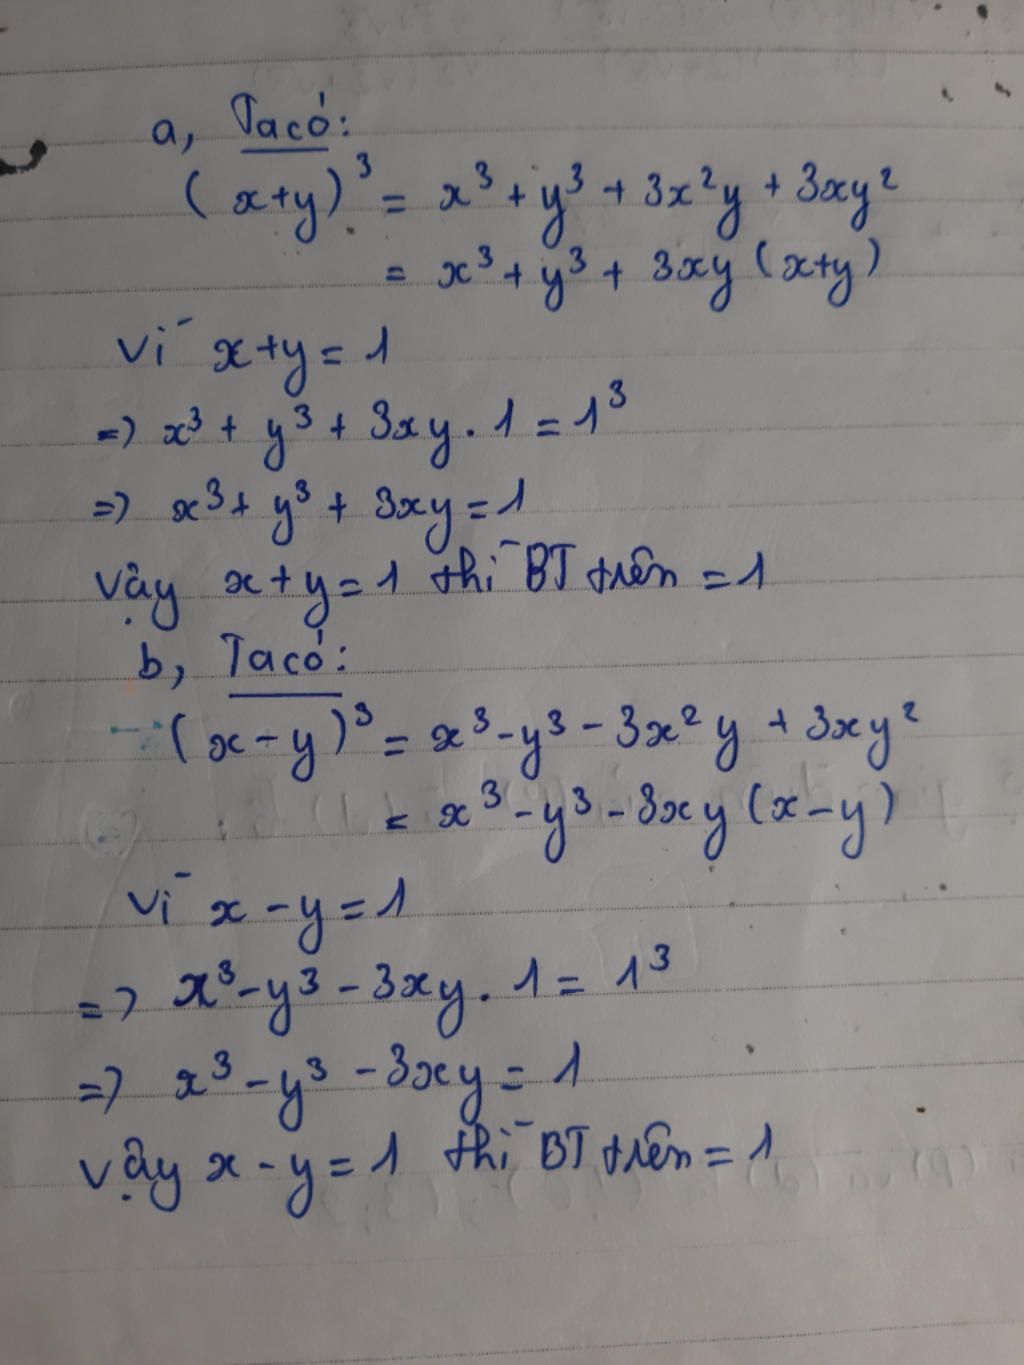 a, Ta có:
(x+y)³ = x³ + y³ + 3x²y + 3xy²
= x³ + y³ + 3xy (x+y)
Vì x+y = 1
=> x³ + y³ + 3xy . 1 = 1³
=> x³ + y³ + 3xy = 1
Vậy x + y = 1 thì BT trên = 1
b, Ta có:
(x - y)³ = x³ - y³ - 3x²y + 3xy²
= x³ - y³ - 3xy (x - y)
Vì x - y = 1
=> x³ - y³ - 3xy . 1 = 1³
=> x³ - y³ - 3xy = 1
Vậy x - y = 1 thì BT trên = 1